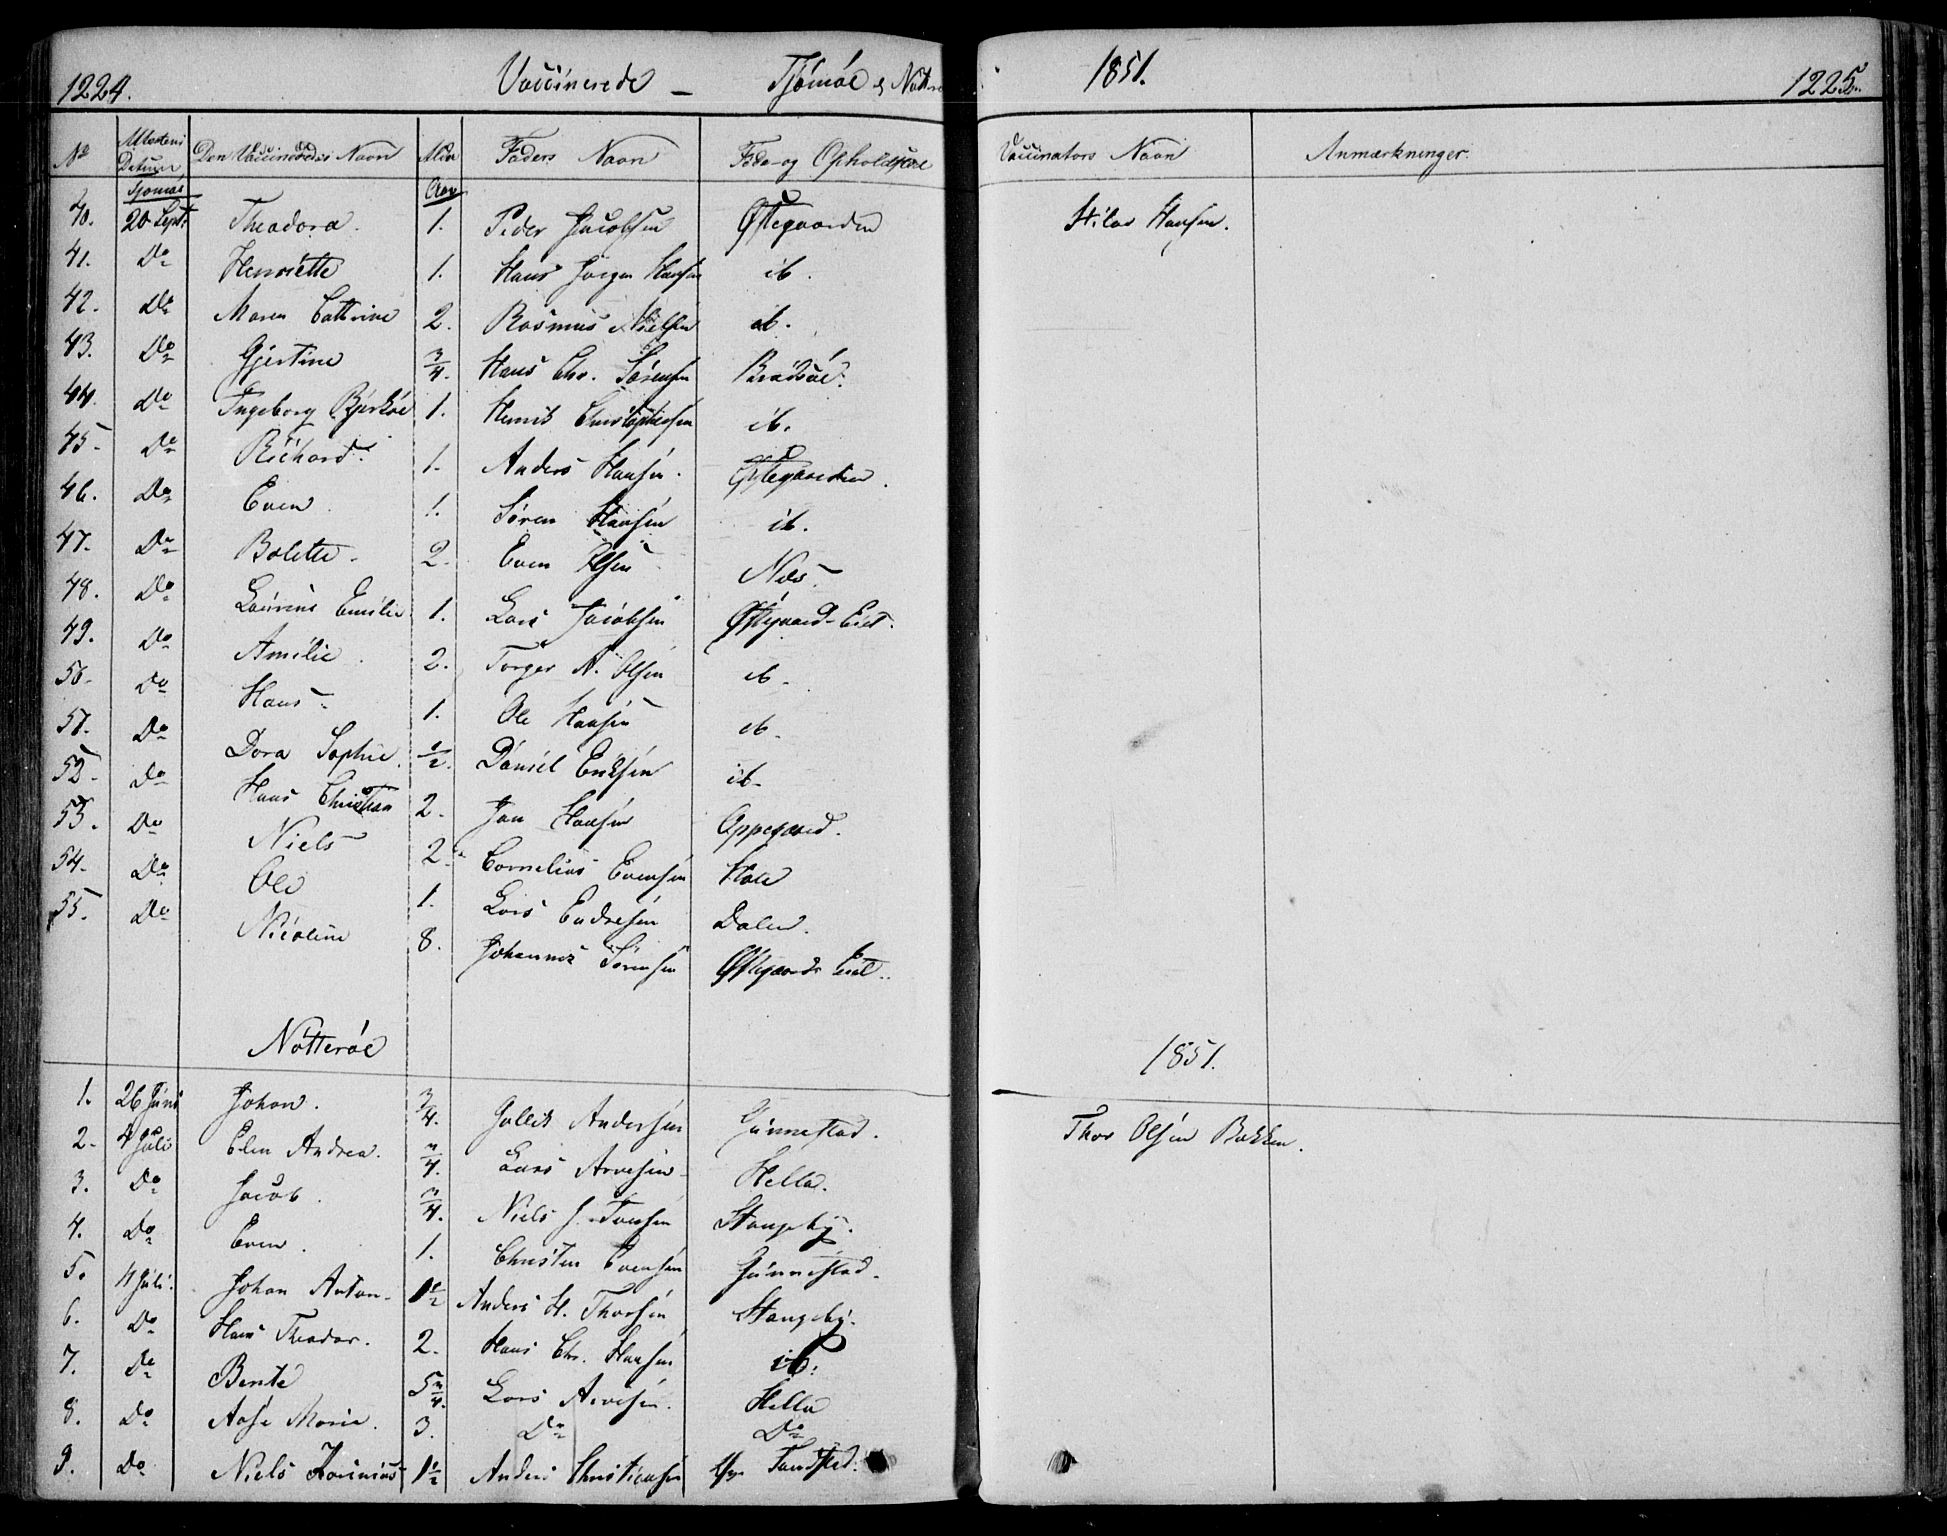 1224. Vaccinerede – Tjømöe & Nøtt 1851. 1225.
No Attestens Datum Den Vaccineredes Navn Alder Faders Navn Føde- og Opholdsted Vaccinators Navn Anmærkninger.
Tjømöe Aar
40. 20 Sept Theodora. 1. Peder Jacobsen Østegaarden Hilar Hansen.
41. Do Henriette 1. Hans Jørgen Hansen ib.
42. Do Maren Cathrine 2. Rasmus Nielsen ib.
43. Do Gjertine 3/4. Hans Chr. Sørensen
44. Do Ingeborg Bjerköe 1. Henrik Christophersen ib.
45. Do Richard. 1. Anders Hansen. Østegaarden.
46. Do Even 1. Søren Hansen ib.
47. Do Bolette. 2. Even Olsen Næs.
48. Do Laurine Emilie 1. Lars Jacobsen Østegaard-Eiet.
49. Do Amilie. 2. Torger N. Olsen ib.
50. Do Hans. 1. Ole Hansen ib.
51. Do Dora Sophie. 1/2. Daniel Eriksen ib.
52. Do Hans Christian 2. Jan Hansen Oppegaard.
53. Do Niels 2. Cornelius Evensen Hole
54. Do Ole 1. Lars Endresen Dalen.
55. Do Nicoline 8. Johannes Sørensen Østegaards Eiet.
Nøtteröe 1851.
1. 26 Juni Johan. 3/4. Gullik Andersen Gunnestad. Thor Olsen Bakken.
2. 4 Juli Elen Andrea. 3/4. Lars Arvesen Hella.
3. Do Jacob. 3/4. Niels J. Iversen Stangeby.
4. Do Even. 1. Christen Evensen Gunnestad.
5. 4 Juli. Johan Anton. 1 1/2 Anders H. Thorsen Stangeby.
6. Do Hans Theodor. 2. Hans Chr. Hansen ib.
7. Do Bente 5 3/4. Lars Arvesen. Hella
8. Do Aase Marie. 3. Do Do
9. Do Niels 1 1/2 Anders Christiansen